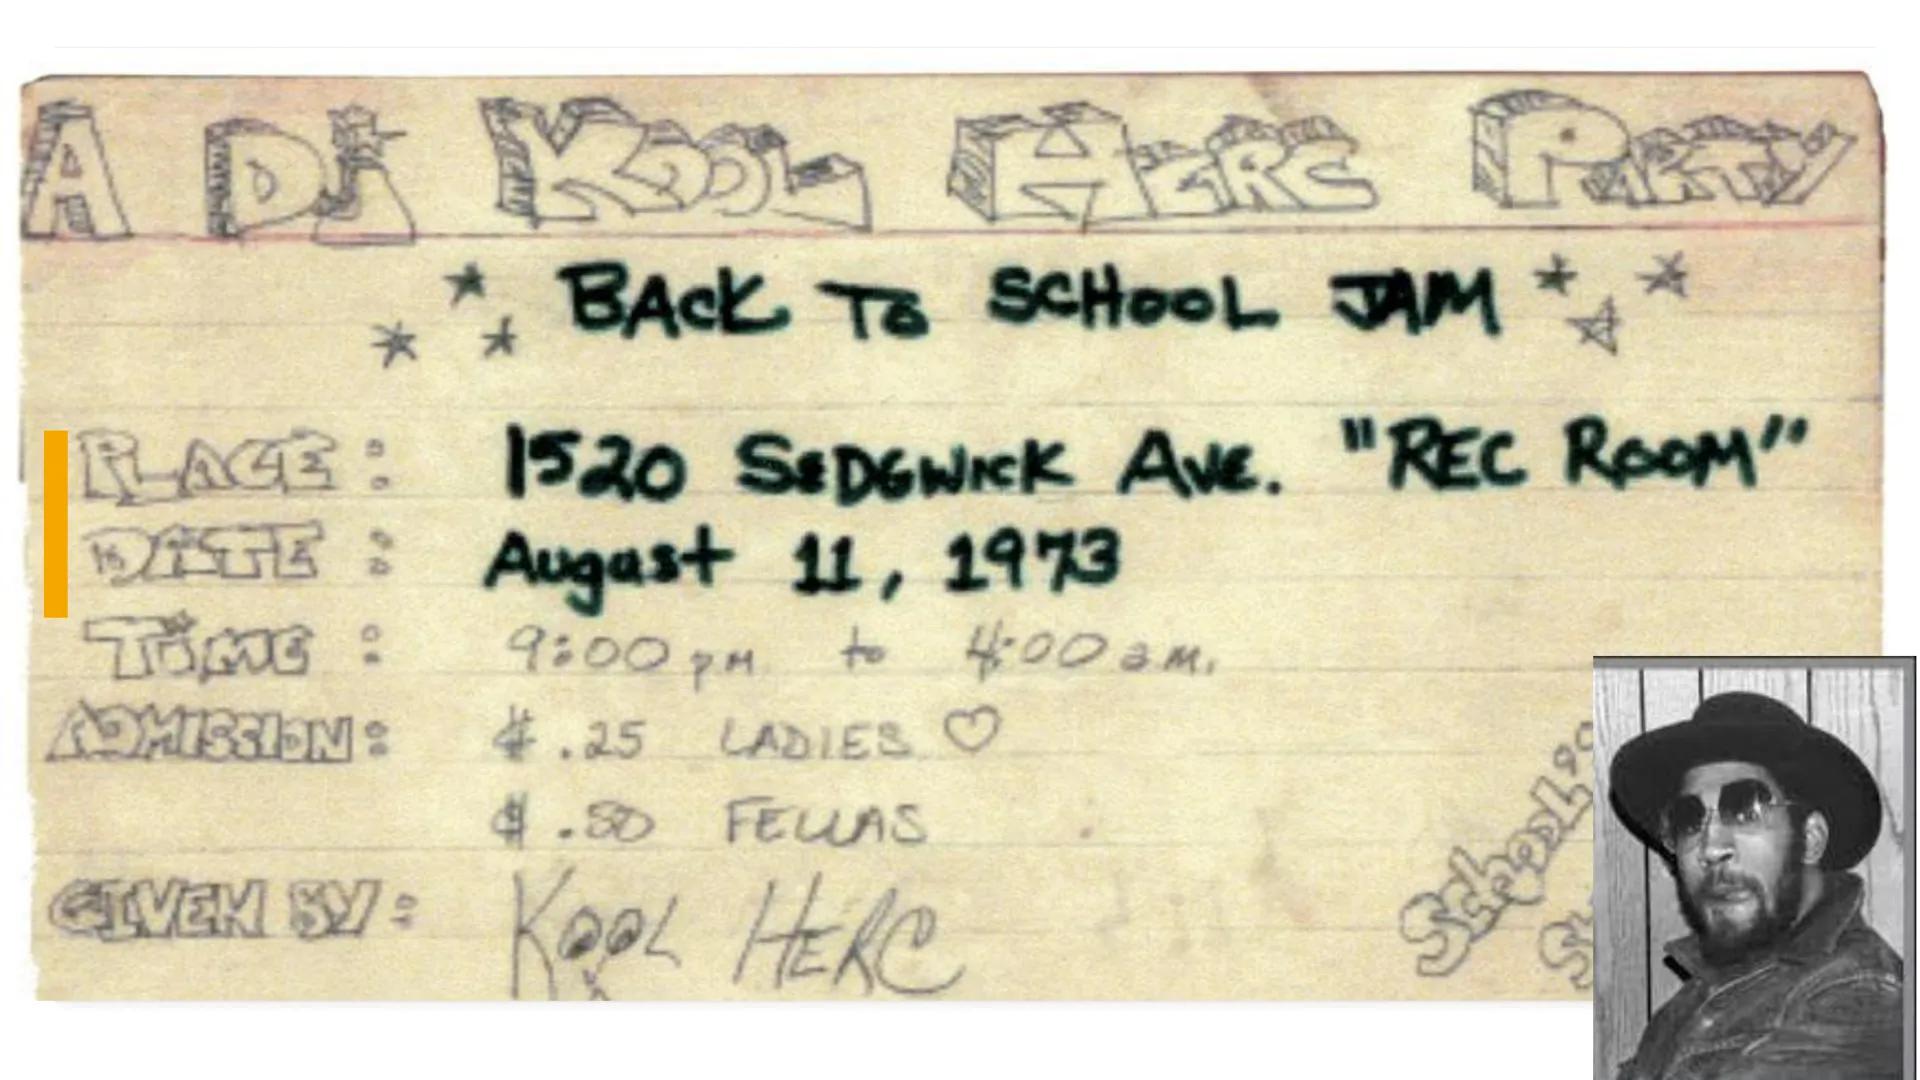 A DJ KOOL HERC PARTY
BACK TO SCHOOL JAM
PLACE : 1520 SEDGWICK AVE. "REC ROOM"
DATE : August 11, 1973
TIME : 9:00 pm to 4:00 a.m.
ADMISSION: $.25 LADIES ♡
$.50 FELLAS
GIVEN BY: KOOL HERC
School